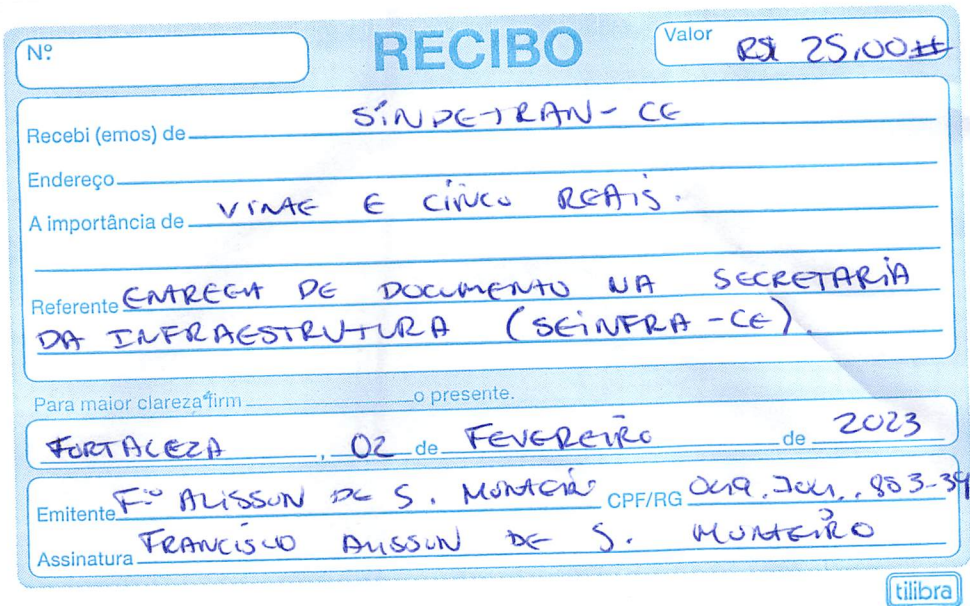 Nº
RECIBO
Valor R$ 25,00
Recebi (emos) de SINDETRAN - CE
Endereço
A importância de VINTE E CINCO REAIS.
Referente ENTREGA DE DOCUMENTO NA SECRETARIA
DA INFRAESTRUTURA (SEINFRA - CE).
Para maior clareza firm o presente.
FORTALEZA, 02 de FEVEREIRO de 2023
Emitente Fº ALISSON DE S. MONTEIRO CPF/RG 883-39
Assinatura FRANCISCO ALISSON DE S. MONTEIRO
tilibra